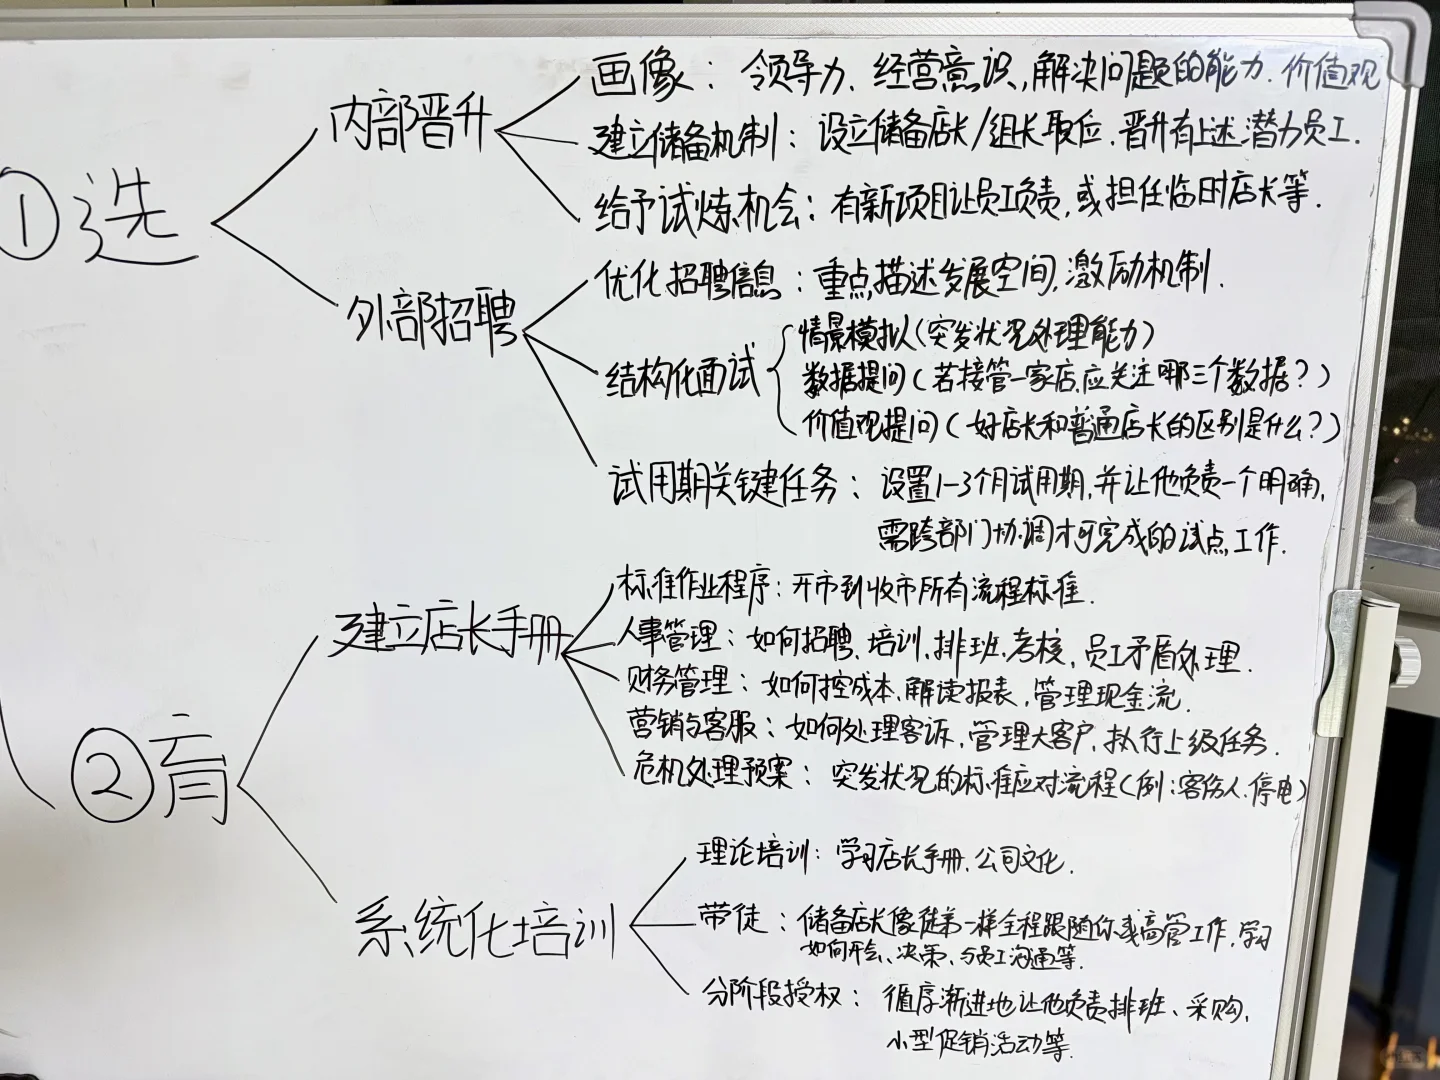 ①选
内部晋升
画像：领导力、经营意识,解决问题的能力.价值观
建立储备机制：设立储备店长/组长职位.晋升有上述潜力员工.
给予试炼机会：有新项目让员工负责,或担任临时店长等.
外部招聘
优化招聘信息：重点描述发展空间,激励机制.
结构化面试
情景模拟(突发状况处理能力)
数据提问(若接管一家店,应关注哪三个数据?)
价值观提问(好店长和普通店长的区别是什么?)
试用期关键任务：设置1-3个月试用期,并让他负责一个明确,
需跨部门协调才可完成的试点工作.
②育
建立店长手册
标准作业程序：开市到收市所有流程标准.
人事管理：如何招聘、培训、排班、考核,员工矛盾处理.
财务管理：如何控成本、解读报表,管理现金流.
营销与客服：如何处理客诉,管理大客户,执行上级任务.
危机处理预案：突发状况的标准应对流程(例:客伤人、停电)
系统化培训
理论培训：学习店长手册、公司文化.
带徒：储备店长像徒弟一样全程跟随你或高管工作,学习
如何开会、决策、与员工沟通等.
分阶段授权：循序渐进地让他负责排班、采购,
小型促销活动等.